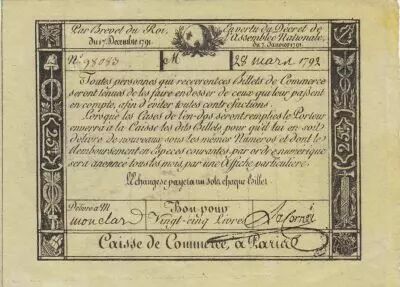 Par Brevet du Roi, En vertu du Décret de
du 7. Decembre 1791. l'Assemblée Nationale,
du 7. Janvier 1791.
N.º 98083 M 28 mars 1792
Toutes personnes qui recevront ces Billets de Commerce
seront tenues de les faire endosser de ceux qui leur passent
en compte, afin d'éviter toutes contrefactions.
Lorsque les Cases de l'en-dos seront remplies le Porteur
enverra à la Caisse les dits Billets pour qu'il lui en soit
délivré de nouveaux sous les mêmes Numeros et dont le
Remboursement en Espèces courantes par ordre numerique
sera annoncé tous les mois par une Affiche particuliere.
L'Echange se payera un sol à chaque Billet
25.tt
25.tt
Délivré à M
monclar
Bon pour
Vingt-cinq Livres
Caisse de Commerce, à Paris